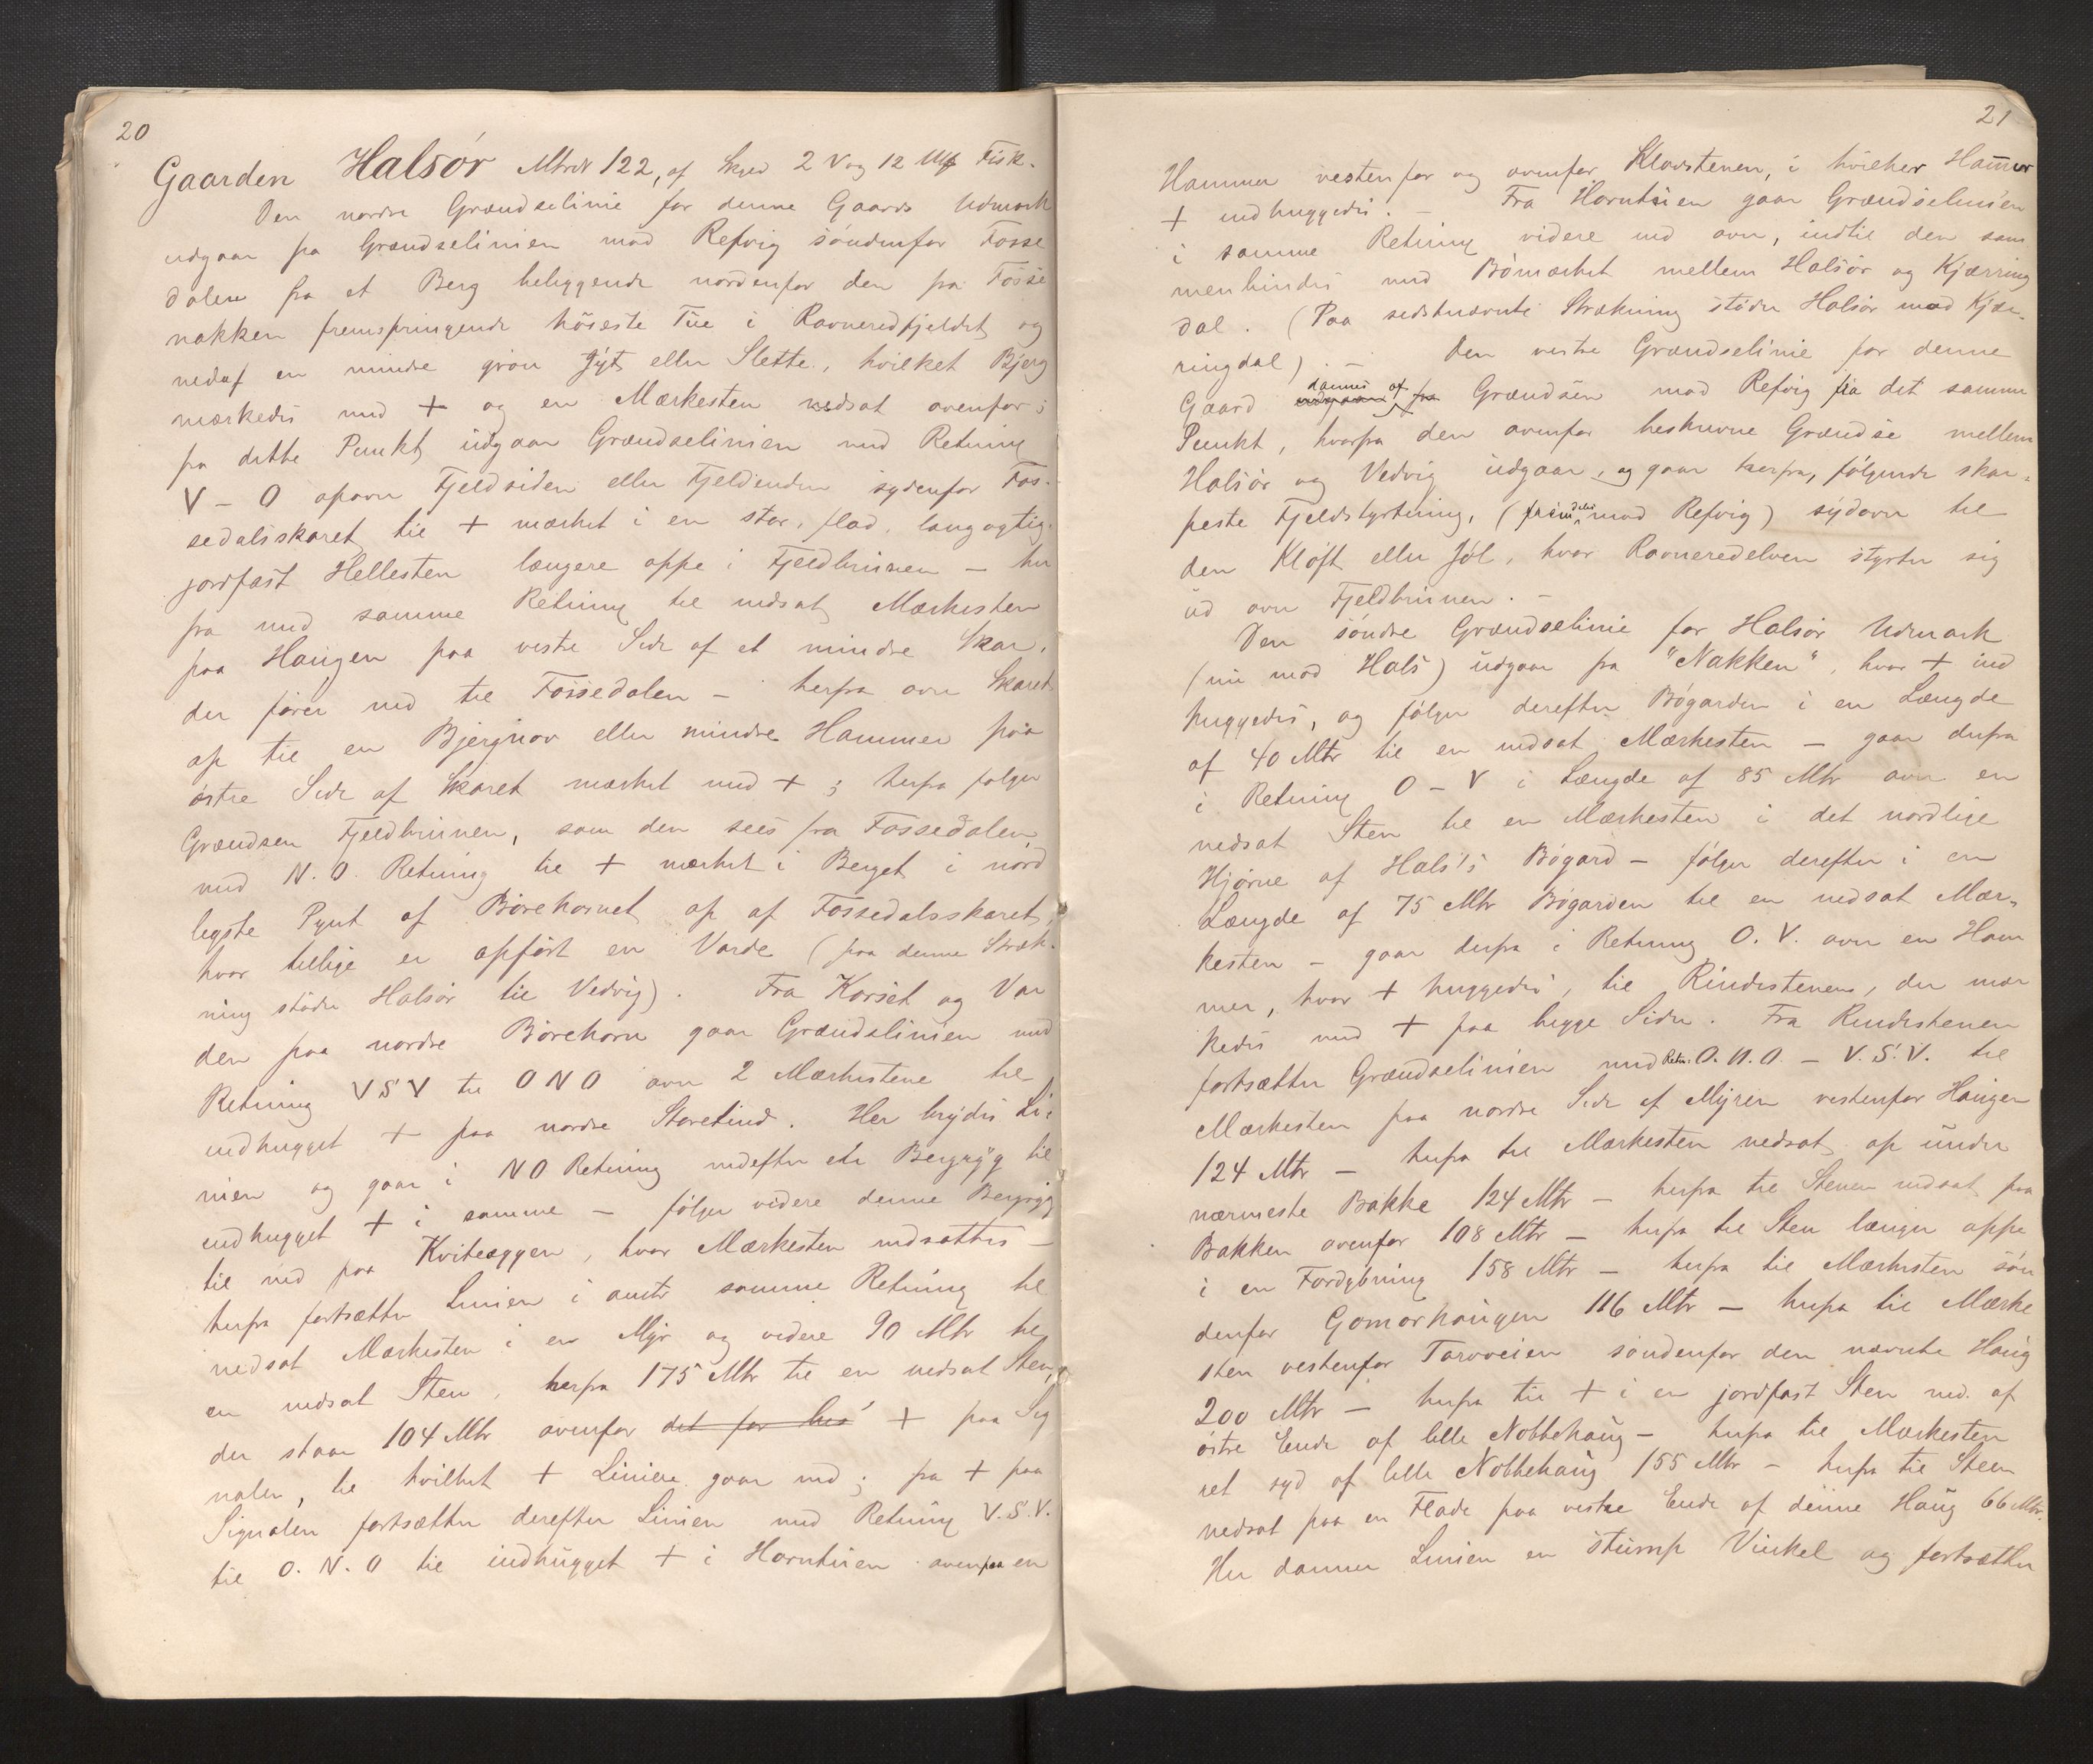 20
Gaarden Halsör Mtrn 122, af Skyld 2 Vog 12 Mk Fisk.
Den nordre Grændselinie for denne Gaards Udmark
udgaar fra Grændselinien mod Refvig söndenfor Fosse
dalen fra et Berg beliggende nordenfor den fra Fosse
nakken fremspringende höieste Tue i Ravneredfjeldet og
nedaf en mindre grön Jyt eller Slette, hvilket Bjerg
mærkedes med + og en Mærkesten nedsat ovenfor;
fra dette Punkt udgaar Grændselinien med Retning
V - O opover Fjeldsiden eller Fjeldenden sydenfor Fos-
sedalsskaret til + mærket i en stor, flad, langagtig
jordfast Hellesten længere oppe i Fjeldbrunen - her
fra med samme Retning til nedsat Mærkesten
paa Haugen paa vestre Side af et mindre Skar,
der förer ned til Fossedalen - herfra over Skaret
op til en Bjergnov eller mindre Hammer paa
östre Side af Skaret mærket med +; herfra fölger
Grændsen Fjeldbrunen, som den sees fra Fossedalen,
med N.O. Retning til + mærket i Berget i nord
ligste Pynt af Börehornet op af Fossedalsskaret,
hvor tillige er opfört en Varde (paa denne Stræk-
ning stöder Halsör til Vedvig). Fra Korset og Var
den paa nordre Börehorn gaar Grændselinien med
Retning VSV til ONO over 2 Mærkestene til
indhugget + paa nordre Storetind. Her brydes Li-
nien og gaar i NO Retning nedefter en Bergryg til
indhugget + i samme - fölger videre denne Bergryg
til ned paa Kviteæggen, hvor Mærkesten nedsattes -
herfra fortsætter Linien i omtr samme Retning til
nedsat Mærkesten i en Myr og videre 90 Mtr til
en nedsat Sten, herfra 175 Mtr til en nedsat Sten,
der staar 104 Mtr ovenfor det for hes + paa Sig
nalen, til hvilket + Linien gaar ned; fra + paa
Signalen fortsætter derefter Linien med Retning V.S.V.
til O.N.O til indhugget + i Horntuen ovenpaa en
21
Hammer vestenfor og ovenfor Klovstenen, i hvilken Hammer
+ indhuggedes. - Fra Horntuen gaar Grændselinien
i samme Retning videre ned over, indtil den sam
menbindes med Bömærket mellem Halsör og Kjærring
dal. (Paa sidstnævnte Strækning stöder Halsör mod Kjær-
ringdal). - Den vestre Grændselinie for denne
Gaard udgaar fra dannes af Grændsen mod Refvig fra det samme
Punkt, hvorfra den ovenfor beskrevne Grændse mellem
Halsör og Vedvig udgaar, og gaar herfra, fölgende skar-
peste Fjeldstyrtning, (fremdeles mod Refvig) sydover til
den Klöft eller Jöl, hvor Ravneredelven styrter sig
ud over Fjeldbrunen. -
Den söndre Grændselinie for Halsör Udmark
(nu mod Hals) udgaar fra "Nakken", hvor + ind
huggedes, og fölger derefter Bögarden i en Længde
af 40 Mtr til en nedsat Mærkesten - gaar derfra
i Retning O - V i Længde af 85 Mtr over en
nedsat Sten til en Mærkesten i det nordlige
Hjörne af Hals's Bögard - fölger derefter i en
Længde af 75 Mtr Bögarden til en nedsat Mær-
kesten - gaar derfra i Retning O. V. over en Ham
mer, hvor + huggedes, til Rindestenen, der mær
kedes med + paa begge Sider. Fra Rindestenen
fortsætter Grændselinien med Retn. O.N.O. - V.S.V. til
Mærkesten paa nordre Side af Myren vestenfor Haugen
124 Mtr - herfra til Mærkesten nedsat op under
nærmeste Bakke 124 Mtr - herfra til Stenen nedsat paa
Bakken ovenfor 108 Mtr - herfra til Sten længer oppe
i en Fordybning 158 Mtr - herfra til Mærkesten sön
denfor Gomorhaugen 116 Mtr - herfra til Mærke
sten vestenfor Torvveien söndenfor den nævnte Haug
200 Mtr - herfra til + i en jordfast Sten ned. af
östre Ende af lille Nobbehaug - herfra til Mærkesten
ret syd af lille Nobbehaug 155 Mtr - herfra til Sten
nedsat paa en Flade paa vestre Ende af denne Haug 66 Mtr.
Her danner Linien en stump Vinkel og fortsætter